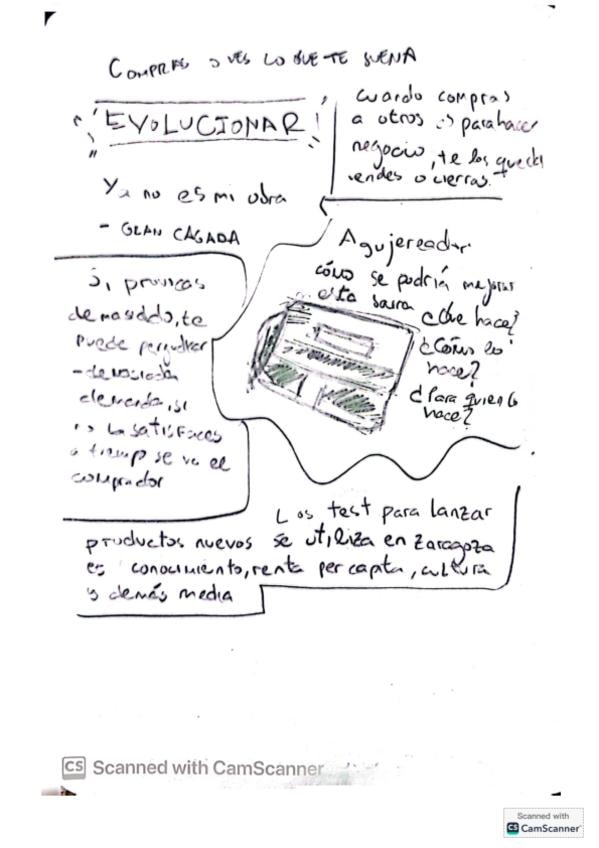 COMPRAS Y VES LO QUE TE SUENA
EVOLUCIONAR!
cuando compras
a otros es para hacer
negocio, te los quedas
vendes o cierras.
Ya no es mi obra
- GRAN CAGADA
Si provocas
demasiado, te
puede perjudicar
- demasiada
demanda, si
no la satisfaces
a tiempo se va el
comprador
Agujereador
cómo se podría mejorar
esta
¿Que hace?
¿Cómo lo
hace?
¿Para quien lo
hace?
Los test para lanzar
productos nuevos se utiliza en Zaragoza
es conocimiento, renta per capita, cultura
y demás media
CS Scanned with CamScanner
Scanned with
CS CamScanner